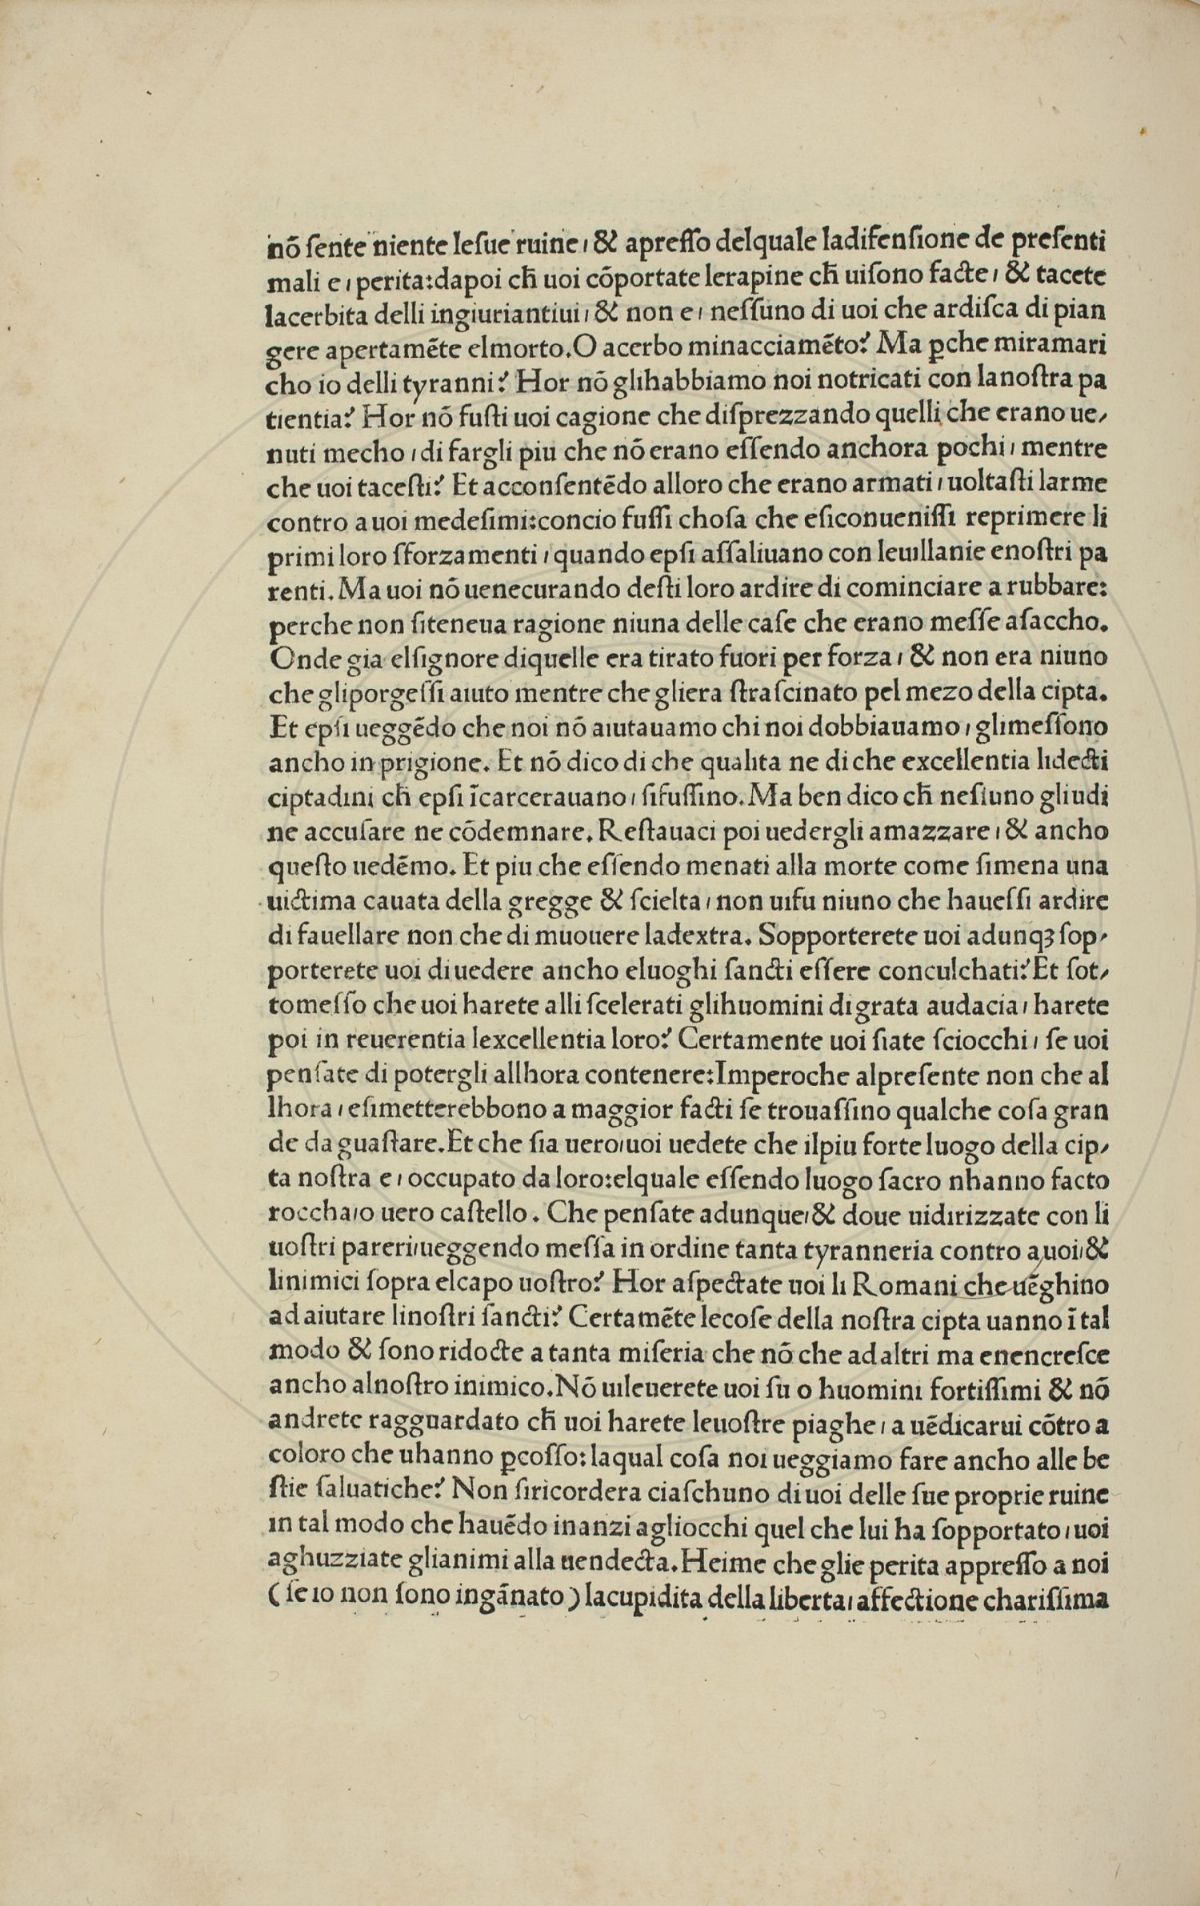 nō ſente niente leſue ruine, & apreſſo delquale ladifenſione de preſenti
mali e, perita:dapoi cħ uoi cōportate lerapine cħ uiſono facte, & tacete
lacerbita delli ingiuriantiui, & non e, neſſuno di uoi che ardiſca di pian
gere apertamēte elmorto. O acerbo minacciamēto? Ma ꝑche miramari
cho io delli tyranni? Hor nō glihabbiamo noi notricati con lanoſtra pa
tientia? Hor nō fuſti uoi cagione che diſprezzando quelli che erano ue⸗
nuti mecho, di fargli piu che nō erano eſſendo anchora pochi, mentre
che uoi taceſti? Et acconſentēdo alloro che erano armati, uoltaſti larme
contro a uoi medeſimi:concio fuſſi choſa che eſiconueniſſi reprimere li
primi loro ſforzamenti, quando epſi aſſaliuano con leuillanie enoſtri pa
renti. Ma uoi nō uenecurando deſti loro ardire di cominciare a rubbare:
perche non ſiteneua ragione niuna delle caſe che erano meſſe aſaccho.
Onde gia elſignore diquelle era tirato fuori per forza, & non era niuno
che gliporgeſſi aiuto mentre che gliera ſtraſcinato pel mezo della cipta.
Et epſi ueggēdo che noi nō aiutauamo chi noi dobbiauamo, glimeſſono
ancho in prigione. Et nō dico di che qualita ne di che excellentia lidecti
ciptadini cħ epſi īcarcerauano, ſifuſſino. Ma ben dico cħ neſiuno gliudi
ne accuſare ne cōdemnare. Reſtauaci poi uedergli amazzare, & ancho
queſto uedēmo. Et piu che eſſendo menati alla morte come ſimena una
uictima cauata della gregge & ſcielta, non uifu niuno che haueſſi ardire
di fauellare non che di muouere ladextra. Sopporterete uoi adunqꝫ ſop⸗
porterete uoi di uedere ancho eluoghi ſancti eſſere conculchati? Et ſot⸗
tomeſſo che uoi harete alli ſcelerati glihuomini digrata audacia, harete
poi in reuerentia lexcellentia loro? Certamente uoi ſiate ſciocchi, ſe uoi
penſate di potergli allhora contenere:Imperoche alpreſente non che al
lhora, eſimetterebbono a maggior facti ſe trouaſſino qualche coſa gran
de da guaſtare. Et che ſia uero, uoi uedete che ilpiu forte luogo della cip⸗
ta noſtra e, occupato da loro:elquale eſſendo luogo ſacro nhanno facto
roccha, o uero caſtello. Che penſate adunque, & doue uidirizzate con li
uoſtri pareri, ueggendo meſſa in ordine tanta tyranneria contro a uoi, &
linimici ſopra elcapo uoſtro? Hor aſpectate uoi li Romani che uēghino
ad aiutare linoſtri ſancti? Certamēte lecoſe della noſtra cipta uanno ī tal
modo & ſono ridocte a tanta miſeria che nō che ad altri ma enencreſce
ancho alnoſtro inimico. Nō uileuerete uoi ſu o huomini fortiſſimi & nō
andrete ragguardato cħ uoi harete leuoſtre piaghe, a uēdicarui cōtro a
coloro che uhanno ꝑcoſſo:laqual coſa noi ueggiamo fare ancho alle be
ſtie ſaluatiche? Non ſiricordera ciaſchuno di uoi delle ſue proprie ruine
in tal modo che hauēdo inanzi agliocchi quel che lui ha ſopportato, uoi
aghuzziate glianimi alla uendecta. Heime che glie perita appreſſo a noi
(ſe io non ſono ingānato) lacupidita della liberta, affectione chariſſima